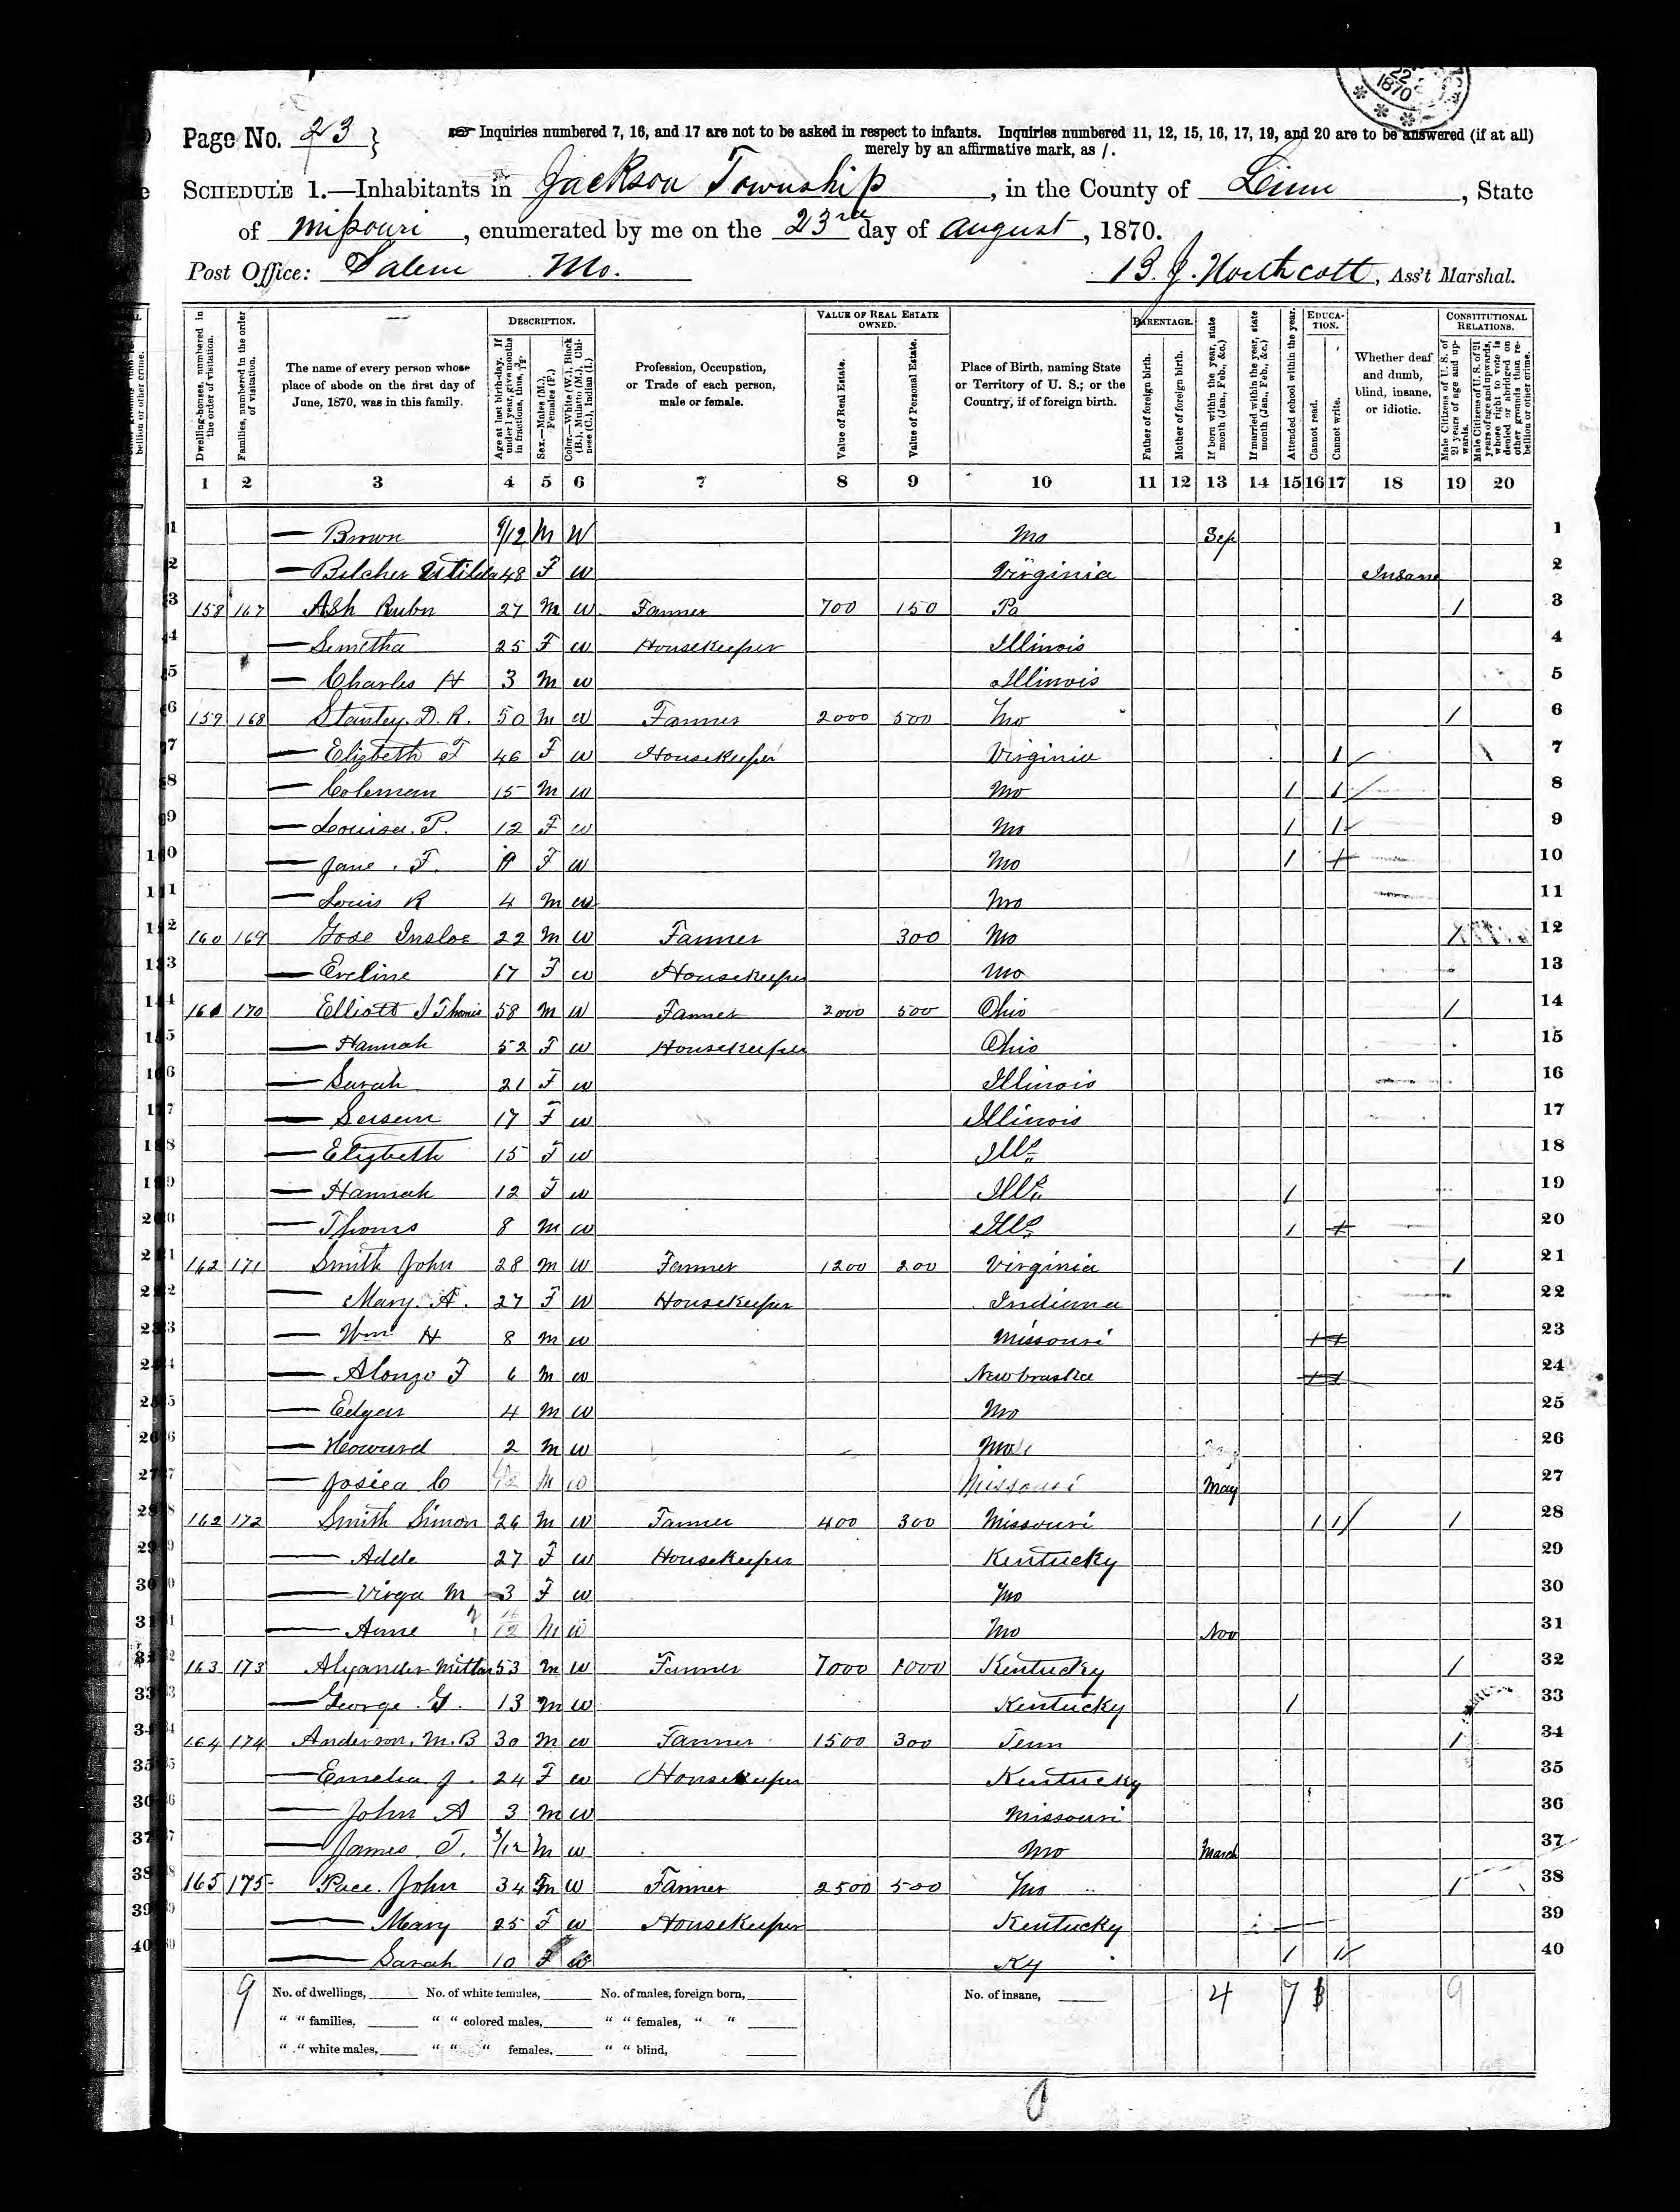 22
1870
Page No. 23 }
Inquiries numbered 7, 16, and 17 are not to be asked in respect to infants. Inquiries numbered 11, 12, 15, 16, 17, 19, and 20 are to be answered (if at all)
merely by an affirmative mark, as /.
SCHEDULE 1.—Inhabitants in Jackson Township, in the County of Linn, State
of Missouri, enumerated by me on the 23rd day of August, 1870.
Post Office: Salem Mo. B. J. Northcott, Ass't Marshal.
DESCRIPTION. VALUE OF REAL ESTATE OWNED. PARENTAGE. EDUCATION. CONSTITUTIONAL RELATIONS.
Dwelling-houses, numbered in the order of visitation.
Families, numbered in the order of visitation.
The name of every person whose place of abode on the first day of June, 1870, was in this family.
Age at last birth-day. If under 1 year, give months in fractions, thus, 3/12
Sex.—Males (M.), Females (F.)
Color.—White (W.), Black (B.), Mulatto (M.), Chinese (C.), Indian (I.)
Profession, Occupation, or Trade of each person, male or female.
Value of Real Estate.
Value of Personal Estate.
Place of Birth, naming State or Territory of U. S.; or the Country, if of foreign birth.
Father of foreign birth.
Mother of foreign birth.
If born within the year, state month (Jan., Feb., &c.)
If married within the year, state month (Jan., Feb., &c.)
Attended school within the year.
Cannot read.
Cannot write.
Whether deaf and dumb, blind, insane, or idiotic.
Male Citizens of U. S. of 21 years of age and upwards.
Male Citizens of U. S. of 21 years of age and upwards, whose right to vote is denied or abridged on other grounds than rebellion or other crime.
1 2 3 4 5 6 7 8 9 10 11 12 13 14 15 16 17 18 19 20
1 — Brown 9/12 M W Mo Sep 1
2 — Belcher 48 F W Virginia Insane 2
3 158 167 Ash Rubn 27 M W Farmer 700 150 Pa / 3
4 — Simetha 25 F W Housekeeper Illinois 4
5 — Charles H 3 M W Illinois 5
6 159 168 Stanley D. R. 50 M W Farmer 2000 500 Mo / 6
7 — Elizbeth F 46 F W Housekeeper Virginia / 7
8 — Coleman 15 M W Mo / / 8
9 — Louisa P. 12 F W Mo / / 9
10 — Jane F. F W Mo / / 10
11 — Louis R 4 M W Mo 11
12 160 169 Gose Insloe 22 M W Farmer 300 Mo / 12
13 — Eveline 17 F W Housekeeper Mo 13
14 161 170 Elliott J Thomis 58 M W Farmer 2000 500 Ohio / 14
15 — Hannah 52 F W Housekeeper Ohio 15
16 — Sarah 21 F W Illinois 16
17 — Sersen 17 F W Illinois 17
18 — Elizbeth 15 F W Ills 18
19 — Hannah 12 F W Ills / 19
20 — Thoms 8 M W Ills / / 20
21 162 171 Smith John 28 M W Farmer 1200 200 Virginia / 21
22 — Mary A. 27 F W Housekeeper Indiana 22
23 — Wm H 8 M W Missouri / / 23
24 — Alonzo F 6 M W Newbraska / / 24
25 — Edgar 4 M W Mo 25
26 — Howard 2 M W Mo 26
27 — Josiea C M W Missouri May 27
28 162 172 Smith Simon 26 M W Farmer 400 300 Missouri / / / 28
29 — Adde 27 F W Housekeeper Kentucky 29
30 — Virga M 3 F W Mo 30
31 — Anne M W Mo Nov 31
32 163 173 Alyander Milton 53 M W Farmer 7000 1000 Kentucky / 32
33 — George G. 13 M W Kentucky / 33
34 164 174 Anderson, M. B 30 M W Farmer 1500 300 Tenn / 34
35 — Emelia J. 24 F W Housekeeper Kentucky 35
36 — John A 3 M W Missouri 36
37 — James T. 3/12 M W Mo March 37
38 165 175 Pace John 34 M W Farmer 2500 500 Mo / 38
39 — Mary 25 F W Housekeeper Kentucky 39
40 — Sarah 10 F W Ky / / 40
9 No. of dwellings, No. of white females, No. of males, foreign born, No. of insane, 4 7 9
" " families, " " colored males, " " females, " "
" " white males, " " " females, " " blind,